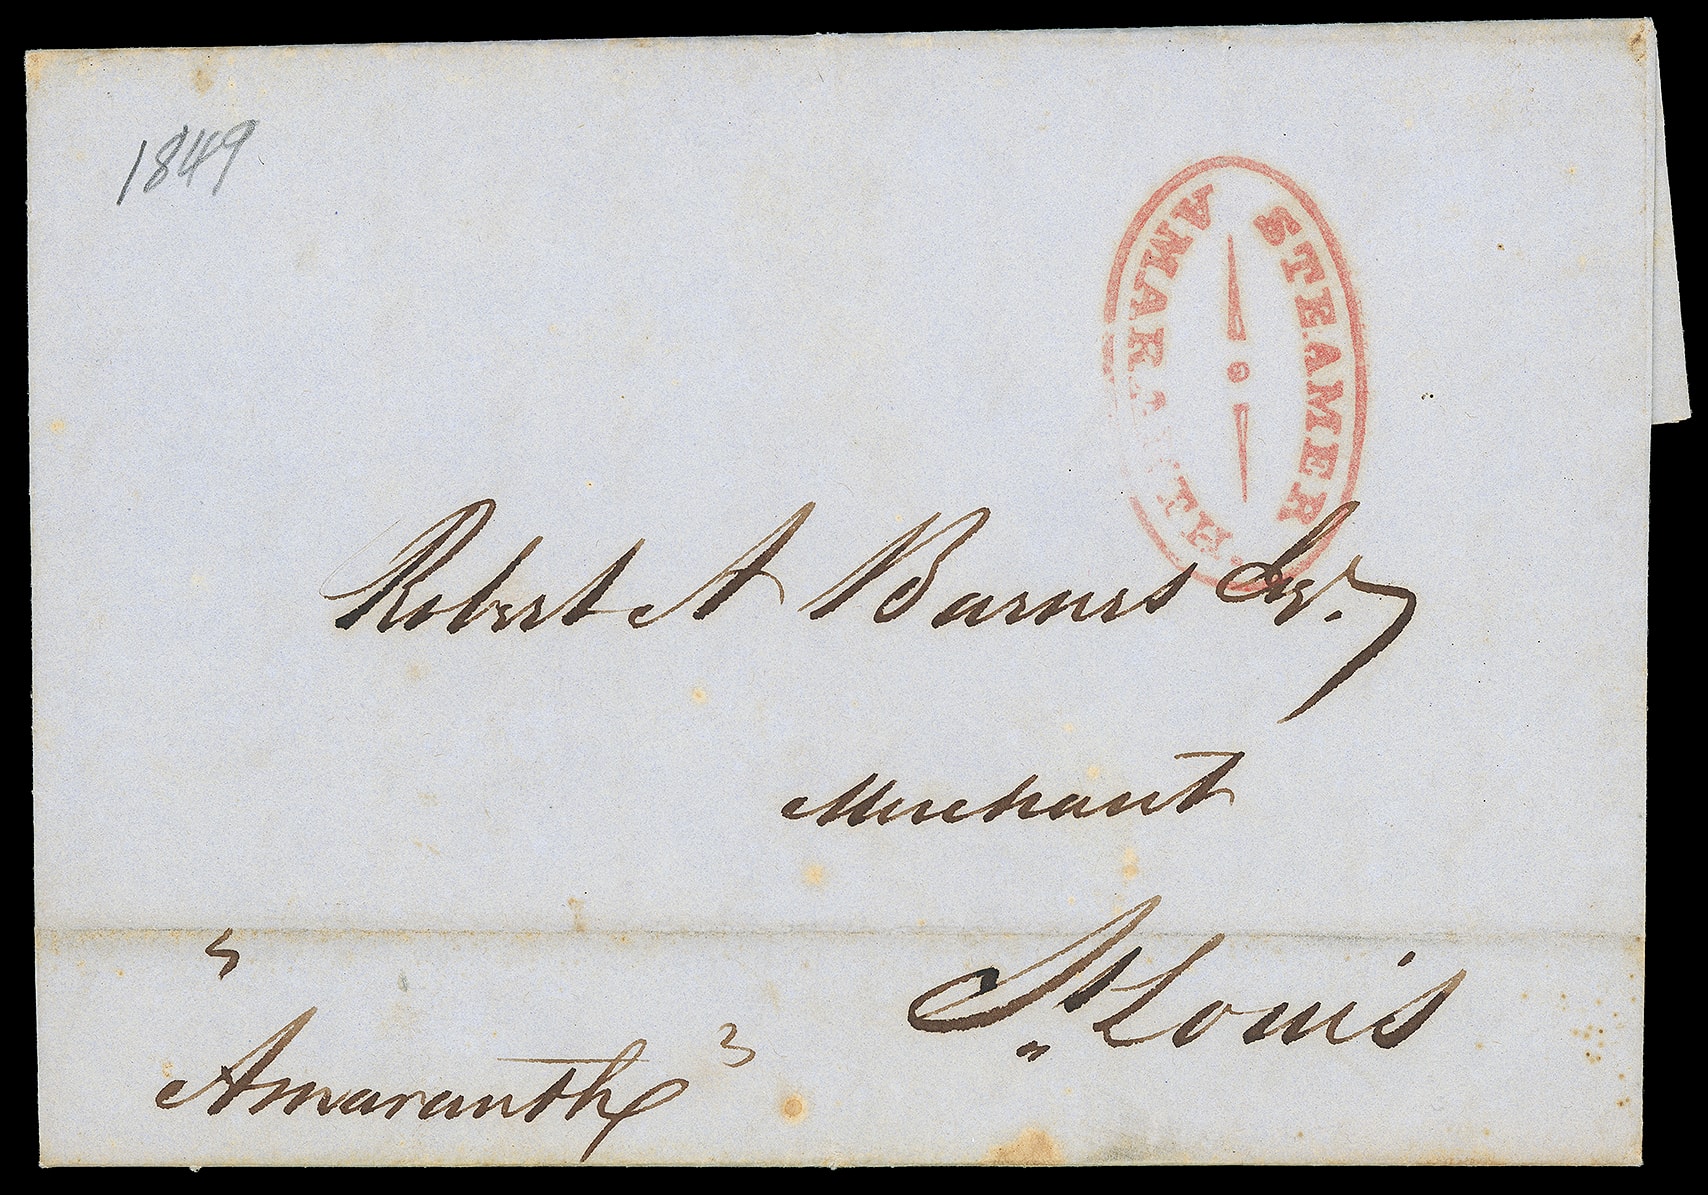 1849
STEAMER
AMARANTH
Robert A Barnes Esqr.
Merchant
St Louis
"Amaranth"